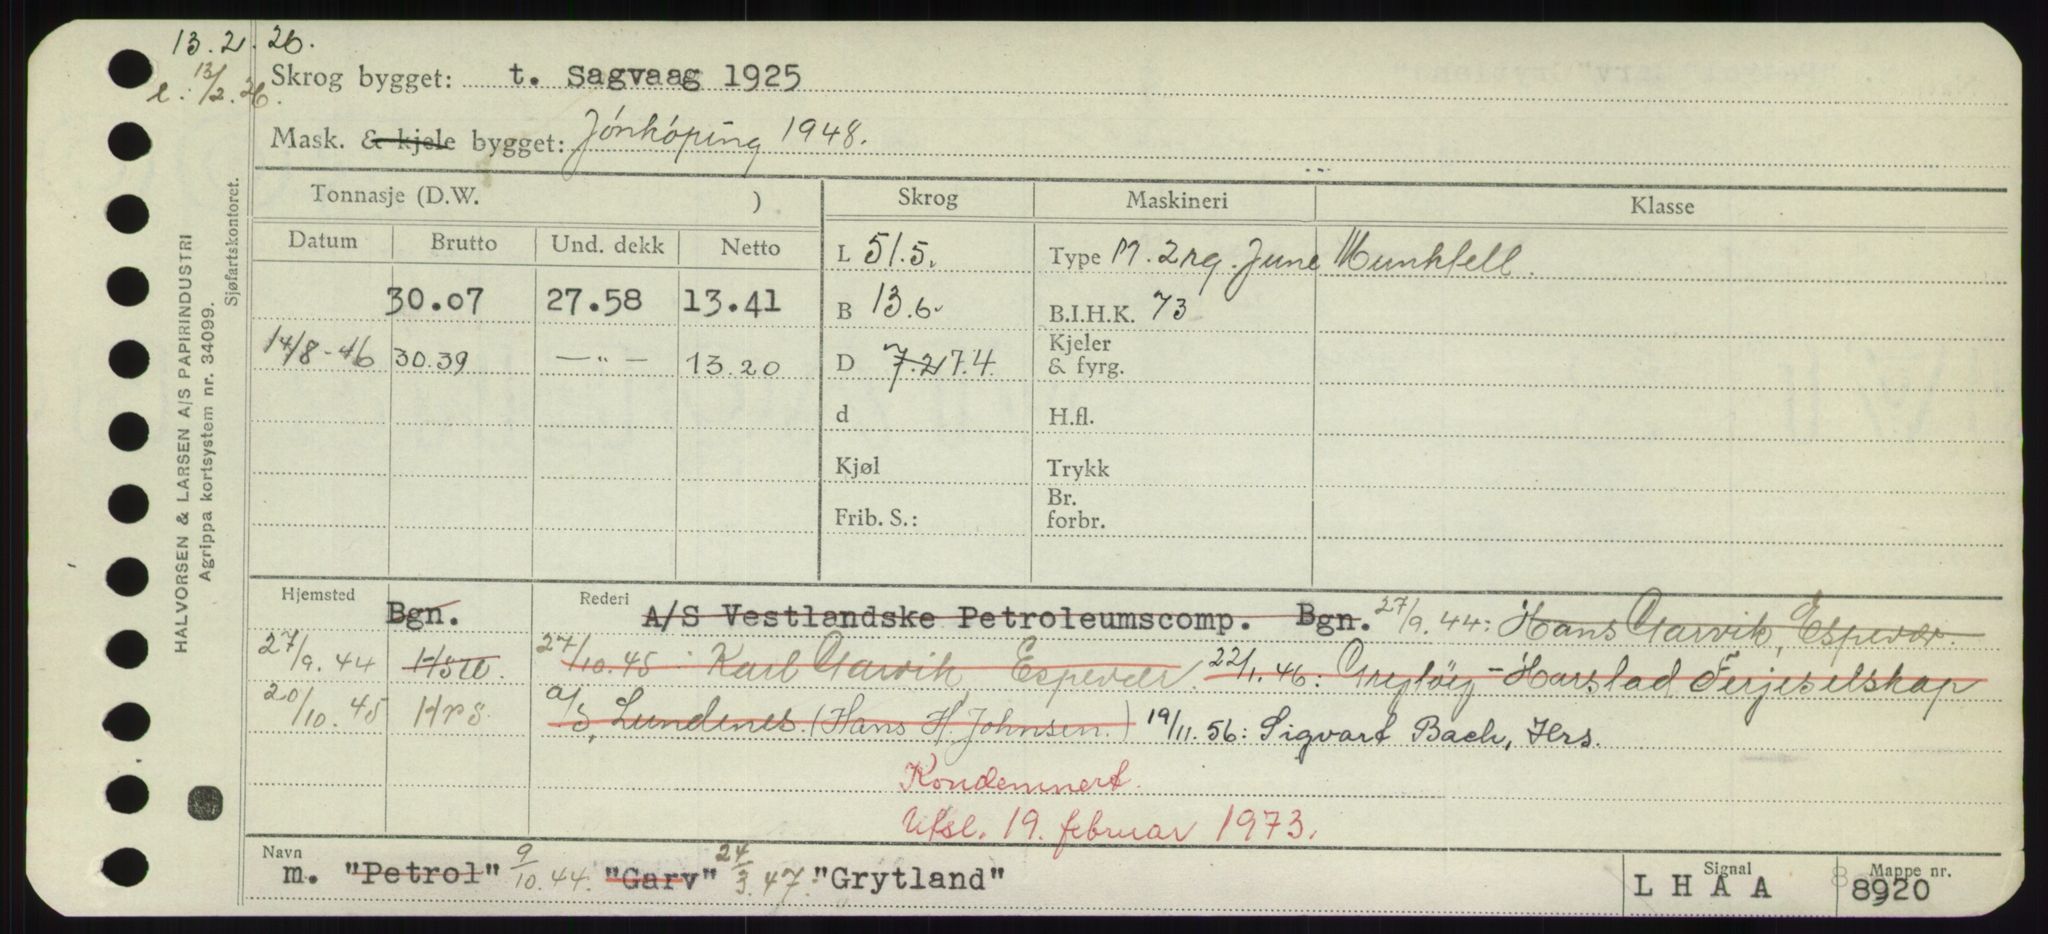 13.2.26.
l. 13/2.26.
Skrog bygget: t. Sagvaag 1925
Mask. & kjele bygget: Jönköping 1948.
Tonnasje (D.W. )
Skrog
Maskineri
Klasse
Datum Brutto Und. dekk Netto
L 51.5.
Type M. 2 rg. June Munktell.
30.07 27.58 13.41
B 13.6.
B.I.H.K. 73
14/8-46 30.39 — " — 13.20
D 7.2 7.4.
Kjeler & fyrg.
d
H.fl.
Kjøl
Trykk
Frib. S.:
Br. forbr.
Hjemsted Bgn.
Rederi A/S Vestlandske Petroleumscomp. Bgn. 27/9.44: Hans Garvik, Espevær.
27/9.44 27/10.45: Karl Garvik, Espevær. 22/1.46: Grytöy-Harstad Ferjeselskap
20/10.45 Hrs. a/s, Lundenes. (Hans H. Johnsen.) 19/11.56: Sigvart Bach, Hrs.
Kondemnert.
Utsl. 19. februar 1973.
Navn m. "Petrol" 9/10.44. "Garv" 24/3.47. "Grytland"
Signal L H A A
Mappe nr. 8920
HALVORSEN & LARSEN A/S PAPIRINDUSTRI
Agrippa kortsystem nr. 34099.
Sjøfartskontoret.